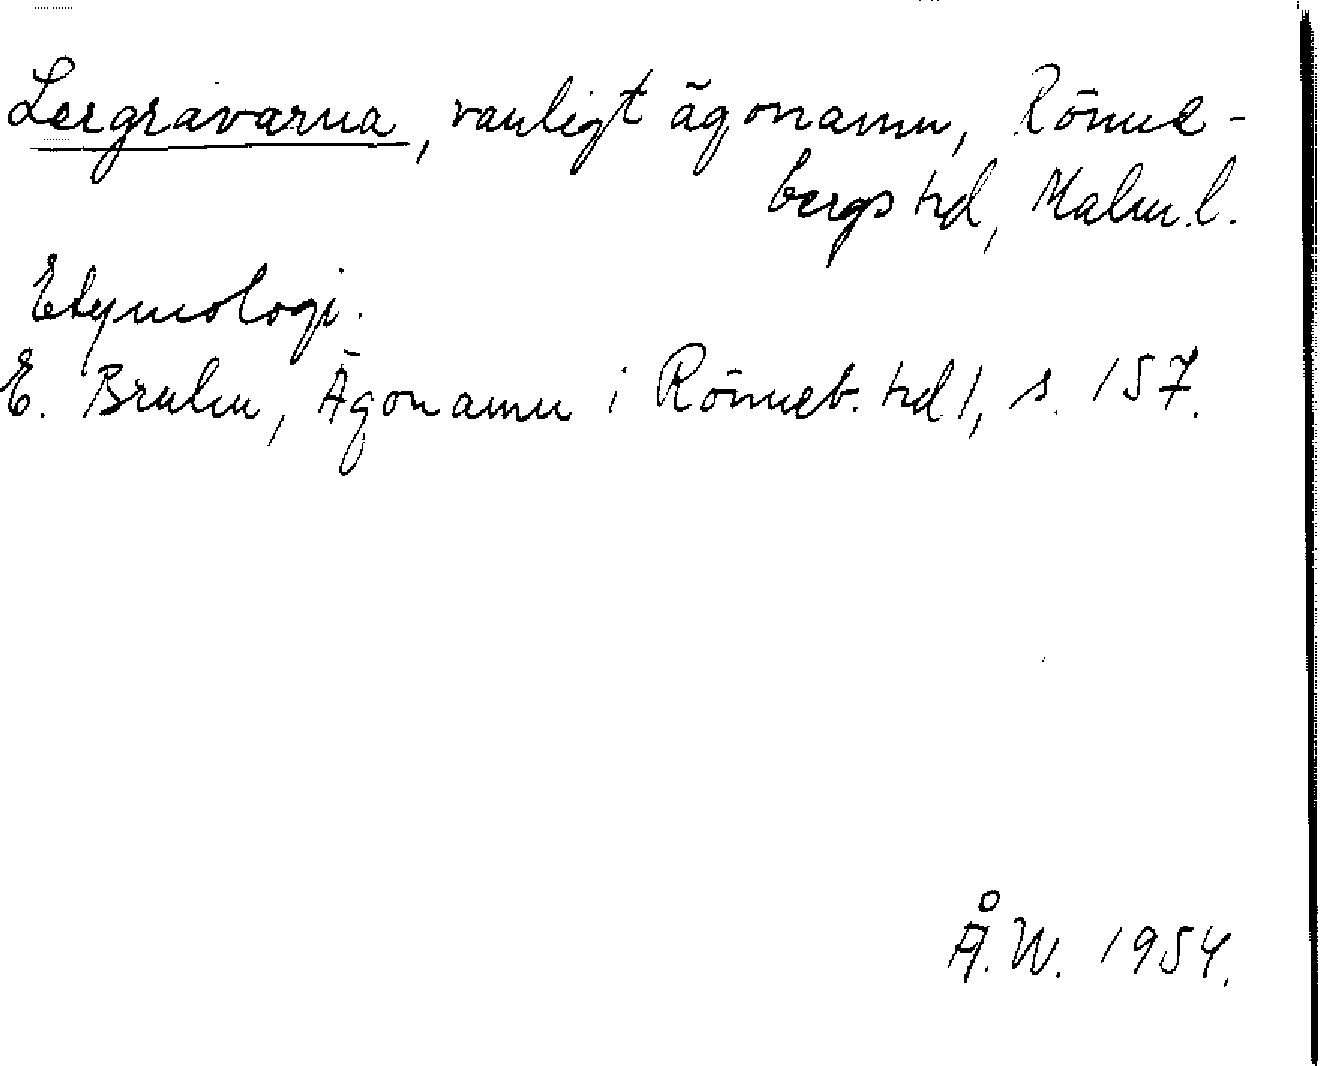 Lergravarna, vanligt ägonamn, Rönne-
bergs hd, Malm. l.
Etymologi.
E. Bruhn, Ägonamn i Rönneb. hd 1, s. 157.
Å. W. 1954.